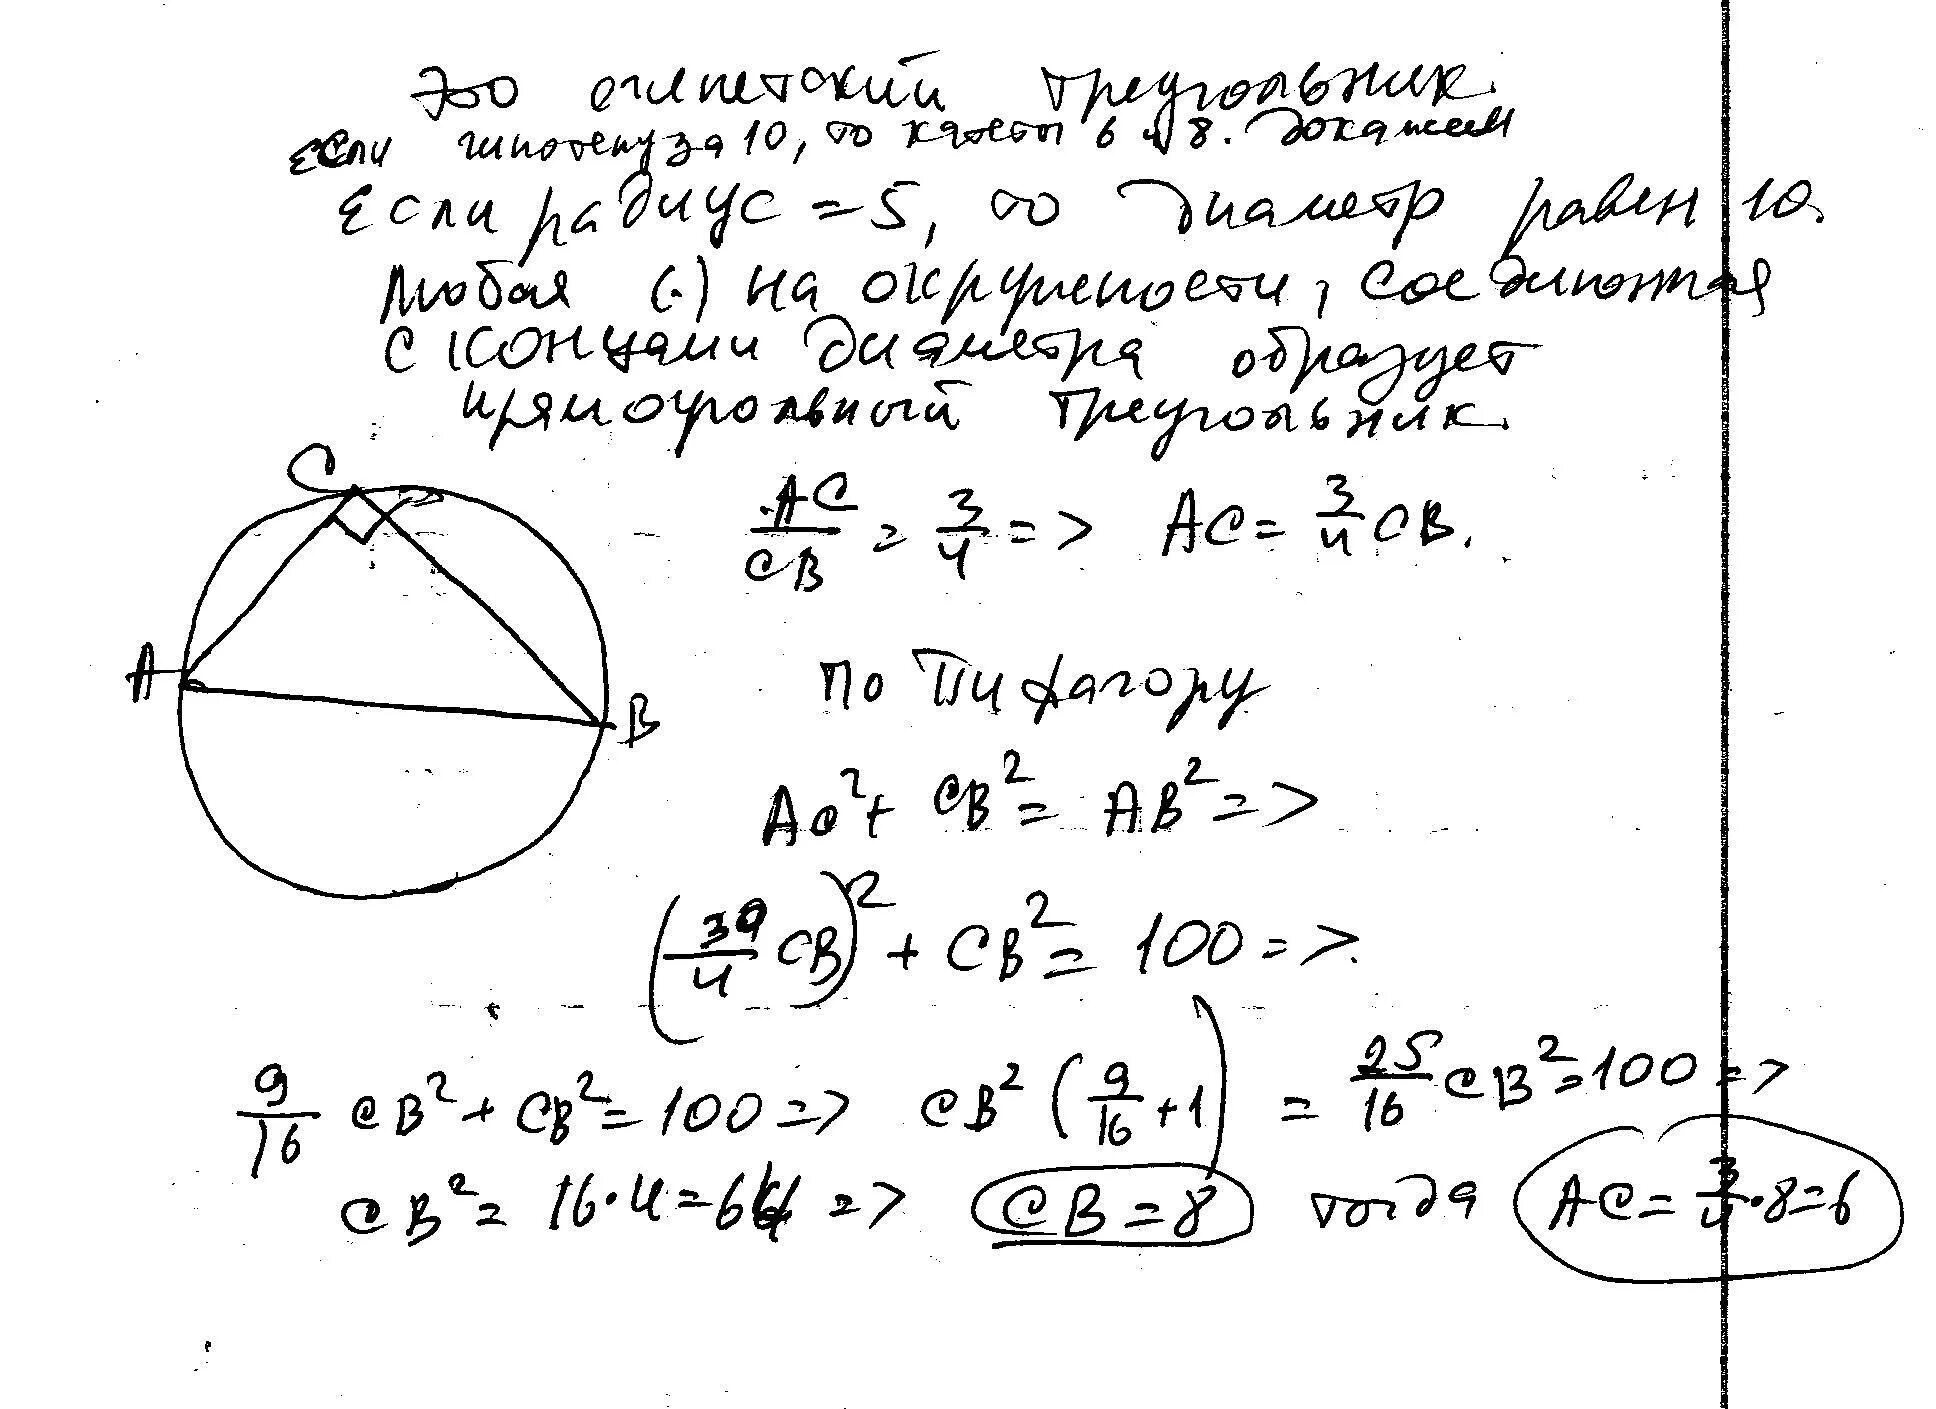 Это египетский треугольник.
Если гипотенуза 10, то катеты 6 и 8. Докажем
Если радиус = 5, то диаметр равен 10.
Любая (.) на окружности, соединённая
с концами диаметра образует
прямоугольный треугольник.
C
AC/CB = 3/4 => AC = 3/4 CB.
A
По Пифагору
B
AC² + CB² = AB² =>
(3/4 CB)² + CB² = 100 =>.
9/16 CB² + CB² = 100 => CB² (9/16 + 1) = 25/16 CB² = 100 =>
CB² = 16·4 = 64 => CB = 8 тогда AC = 3/4·8 = 6